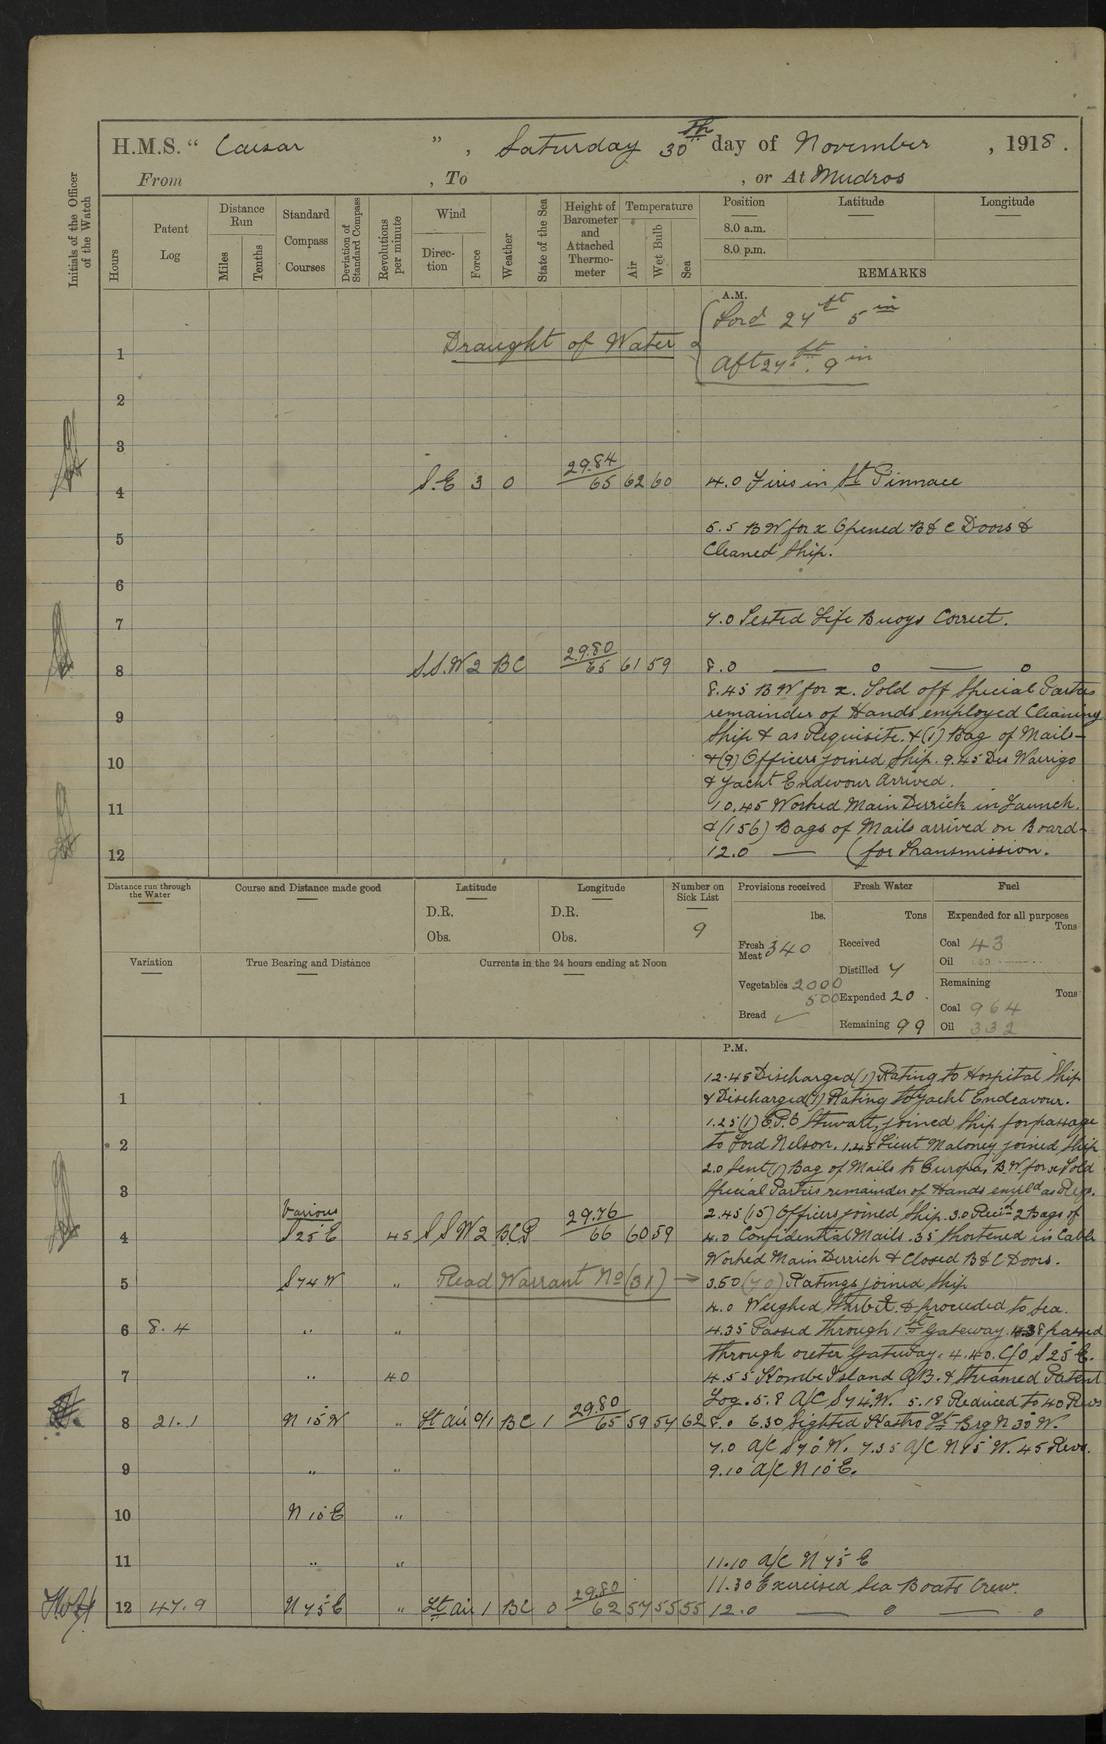 H.M.S. "Caesar", Saturday 30th day of November, 1918.
From , To , or At Mudros
Initials of the Officer of the Watch
Hours
Patent Log
Distance Run
Miles
Tenths
Standard Compass Courses
Deviation of Standard Compass
Revolutions per minute
Wind
Direction
Force
Weather
State of the Sea
Height of Barometer and Attached Thermometer
Temperature
Air
Wet Bulb
Sea
Position Latitude Longitude
8.0 a.m.
8.0 p.m.
REMARKS
A.M.
Draught of Water { Ford 24 ft 5 in
Aft 24 ft 9 in
1
2
3
4 S.E 3 O 29.84/65 62 60 4.0 Fires in St Pinnace
5.5 B W for x Opened B & C Doors &
5 Cleaned Ship.
6
7 7.0 Tested Life Buoys Correct.
8 S.S.W 2 BC 29.80/65 61 59 8.0 — o — o
8.45 B W for x. Told off Special Parties
9 remainder of Hands employed Cleaning
Ship & as Requisite. & (1) Bag of Mails
10 & (9) Officers joined Ship. 9.45 Des Warrigo
& Yacht Endevour Arrived.
11 10.45 Worked Main Derrick in Launch.
& (156) Bags of Mails arrived on Board
12 12.0 — (for Transmission.
Distance run through the Water
Course and Distance made good
Latitude D.R. Obs.
Longitude D.R. Obs.
Number on Sick List 9
Provisions received lbs.
Fresh Meat 340
Vegetables 2000
500
Bread ✓
Fresh Water Tons
Received
Distilled 7
Expended 20
Remaining 99
Fuel
Expended for all purposes Tons
Coal 43
Oil
Remaining Tons
Coal 964
Oil 332
Variation
True Bearing and Distance
Currents in the 24 hours ending at Noon
P.M.
12.45 Discharged (1) Rating to Hospital Ship
1 & Discharged (7) Rating to Yacht Endeavour.
1.25 (1) Stewart, joined Ship for passage
2 to Lord Nelson. 1.45 Lieut Maloney joined Ship
2.0 Sent (1) Bag of Mails to Europa, B.W. for x Told
3 Special Parties remainder of Hands empld as Req.
Various
2.45 (15) Officers joined Ship. 3.0 2 Bags of
4 S 25° E 45 S S W 2 B.C.P 29.76/66 60 59 4.0 Confidential Mails. 35 Shortened in Cable
Worked Main Derrick & Closed B & C Doors.
5 S 74 W " Read Warrant No (31) → 3.50 (70) Ratings joined Ship
4.0 Weighed & proceeded to Sea.
6 8.4 " " 4.35 Passed through 1st Gateway. 4.38 passed
through outer Gateway. 4.40. C/O S 25° E.
7 " 40 4.55 Kombi Island A/B. & Streamed Patent
Log. 5.8 A/C S 74 W. 5.18 Reduced to 40 Revs
8 21.1 N 15° W " Lt air 0/1 BC 1 29.80/65 59 57 62 8.0 6.30 Sighted Kastro Lt Brg N 30° W.
7.0 A/C S 70° W. 7.35 A/C N 15° W. 45 Revs.
9 " " 9.10 A/C N 10° E.
10 N 10° E "
11 " " 11.10 A/C N 75° E
11.30 Exercised Sea Boats Crew.
12 47.9 N 75° E " Lt air 1 BC 0 29.80/62 57 55 55 12.0 — o — o